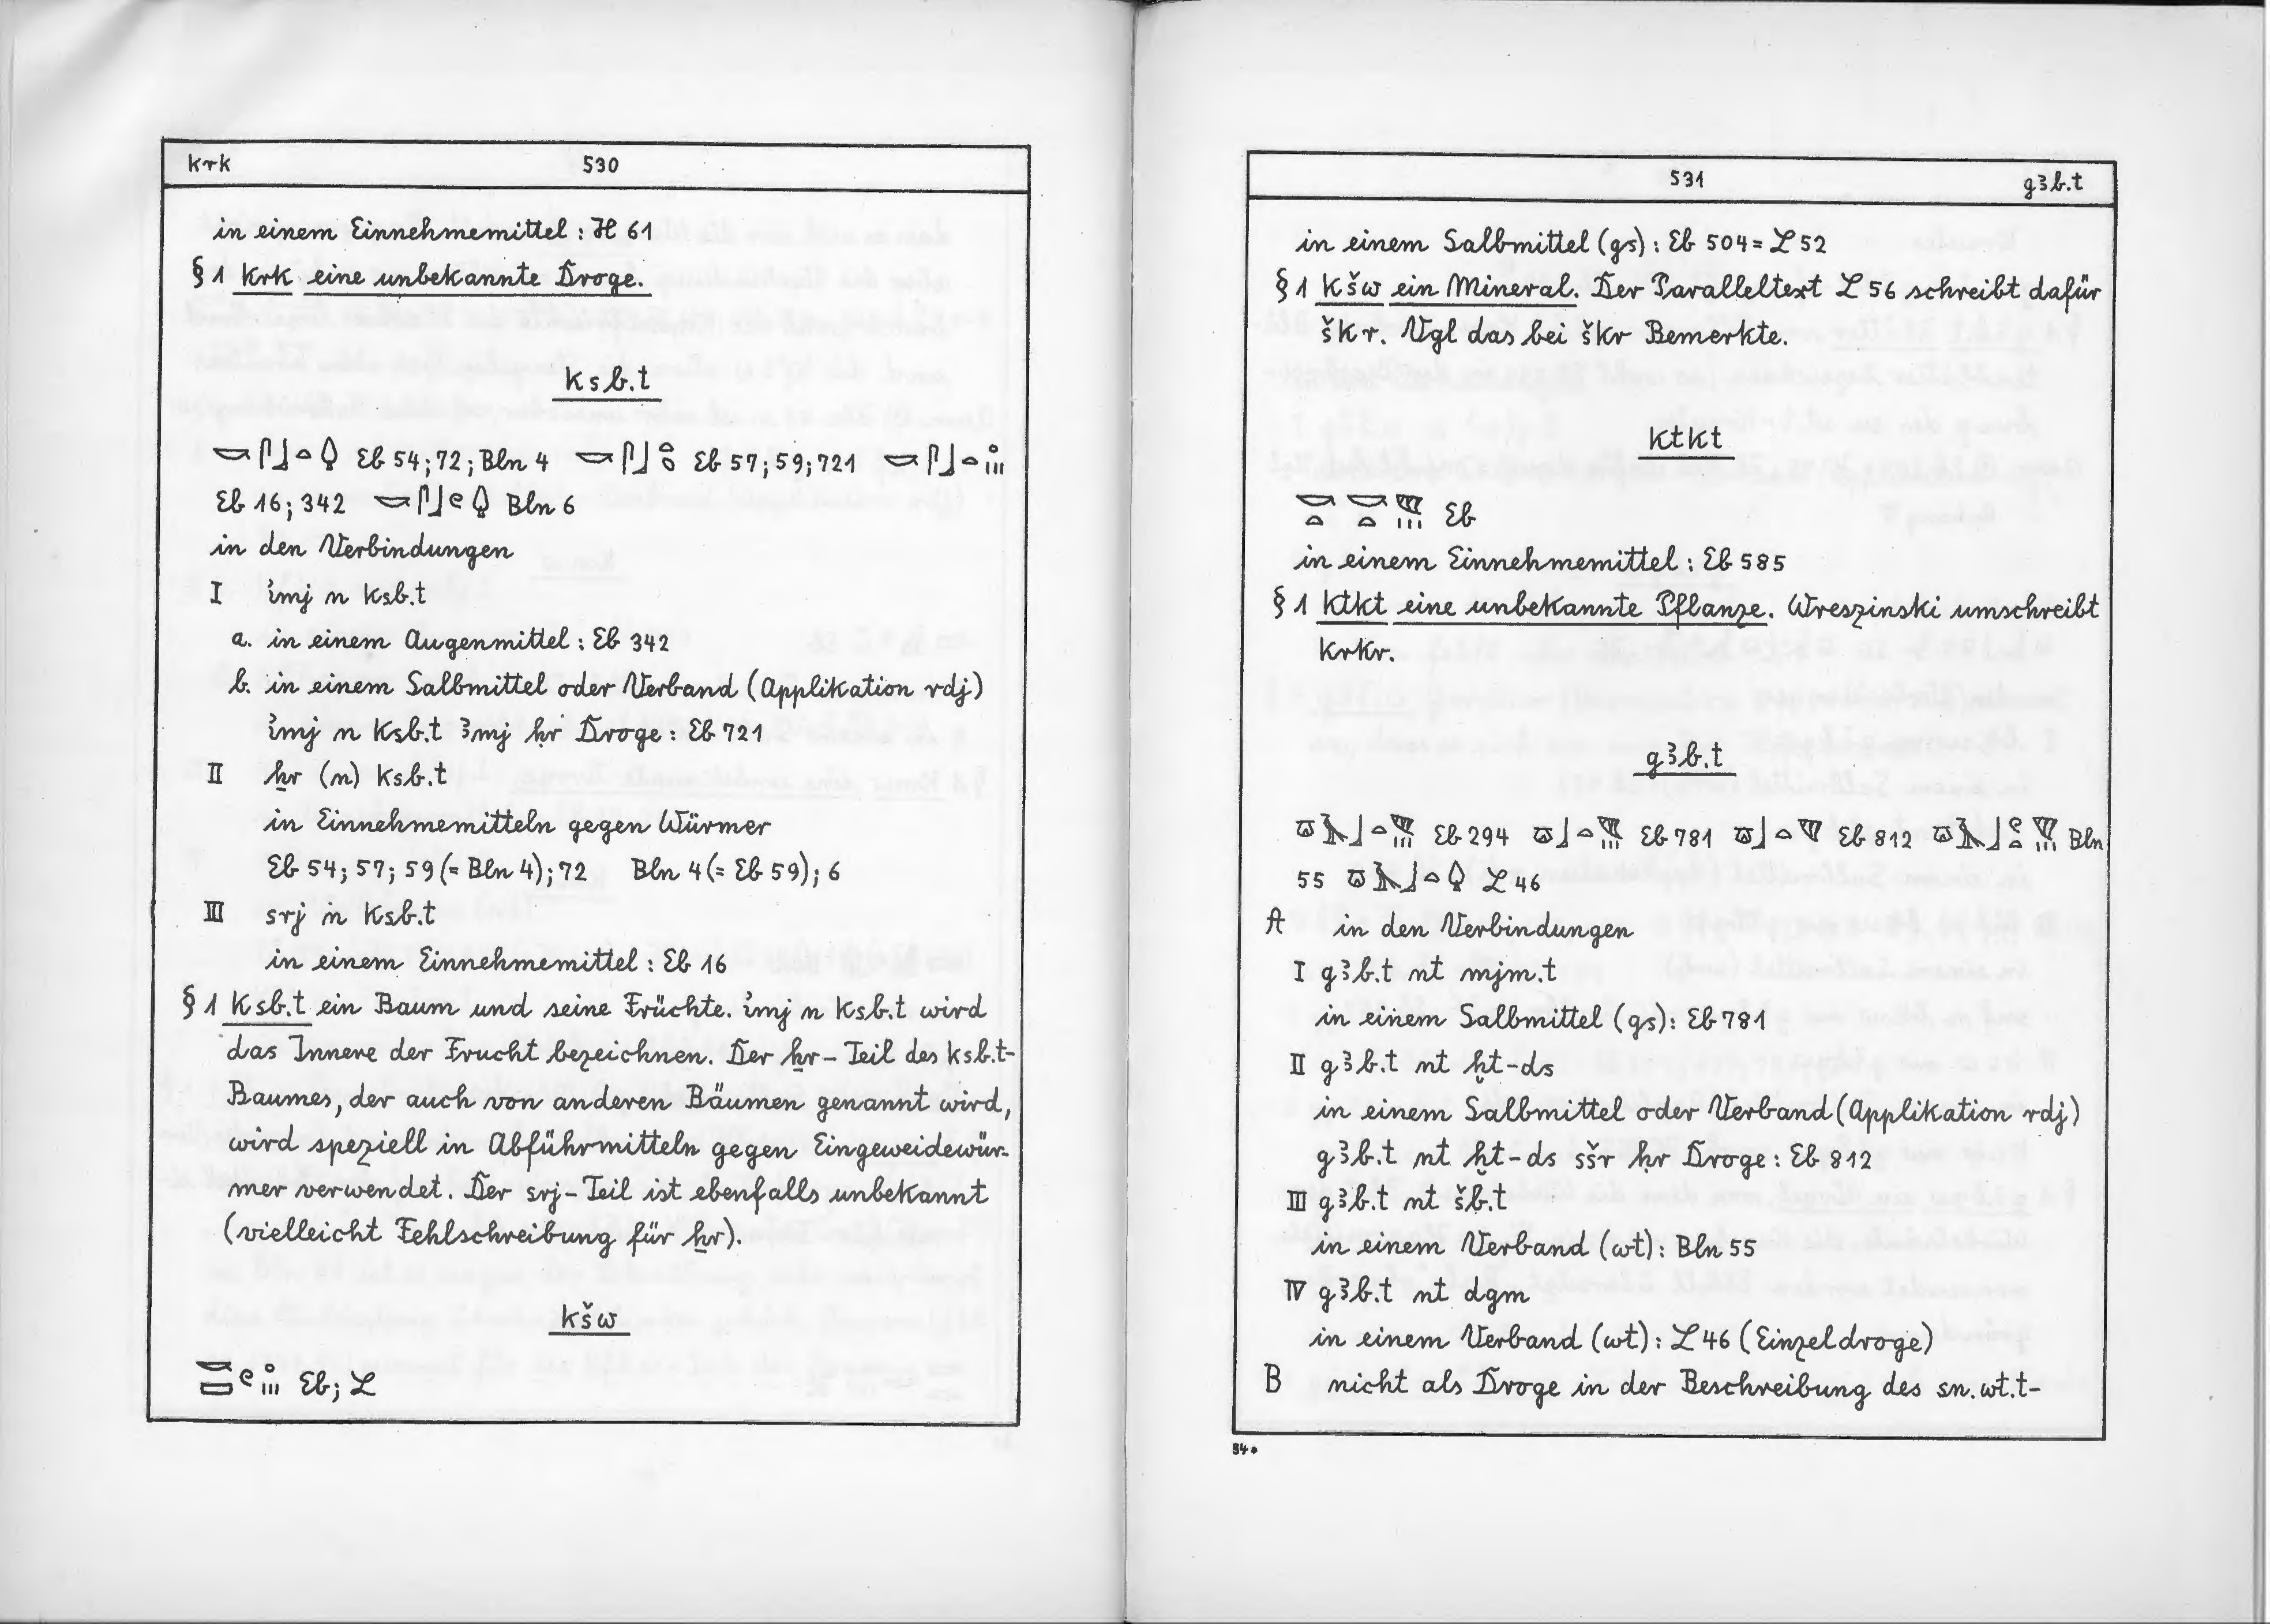 krk 530
in einem Einnehmemittel : H 61
§ 1 krk eine unbekannte Droge.
ksb.t
Eb 54; 72; Bln 4 Eb 57; 59; 721
Eb 16; 342 Bln 6
in den Verbindungen
I ỉmj n ksb.t
a. in einem Augenmittel : Eb 342
b. in einem Salbmittel oder Verband (Applikation rdj)
ỉmj n ksb.t ꜣmj ḥr Droge : Eb 721
II ẖr (n) ksb.t
in Einnehmemitteln gegen Würmer
Eb 54; 57; 59 (= Bln 4); 72 Bln 4 (= Eb 59); 6
III srj n ksb.t
in einem Einnehmemittel : Eb 16
§ 1 ksb.t ein Baum und seine Früchte. ỉmj n ksb.t wird
das Innere der Frucht bezeichnen. Der ẖr-Teil des ksb.t-
Baumes, der auch von anderen Bäumen genannt wird,
wird speziell in Abführmitteln gegen Eingeweidewür-
mer verwendet. Der srj-Teil ist ebenfalls unbekannt
(vielleicht Fehlschreibung für ẖr).
kšw
Eb; L
531 gꜣb.t
in einem Salbmittel (gs) : Eb 504 = L 52
§ 1 kšw ein Mineral. Der Paralleltext L 56 schreibt dafür
škr. Vgl das bei škr Bemerkte.
ktkt
Eb
in einem Einnehmemittel : Eb 585
§ 1 ktkt eine unbekannte Pflanze. Wreszinski umschreibt
krkr.
gꜣb.t
Eb 294 Eb 781 Eb 812 Bln
55 L 46
A in den Verbindungen
I gꜣb.t nt mjm.t
in einem Salbmittel (gs) : Eb 781
II gꜣb.t nt ḫt-ds
in einem Salbmittel oder Verband (Applikation rdj)
gꜣb.t nt ḫt-ds sšr ḥr Droge : Eb 812
III gꜣb.t nt šb.t
in einem Verband (wt) : Bln 55
IV gꜣb.t nt dgm
in einem Verband (wt) : L 46 (Einzeldroge)
B nicht als Droge in der Beschreibung des sn.wt.t-
34*